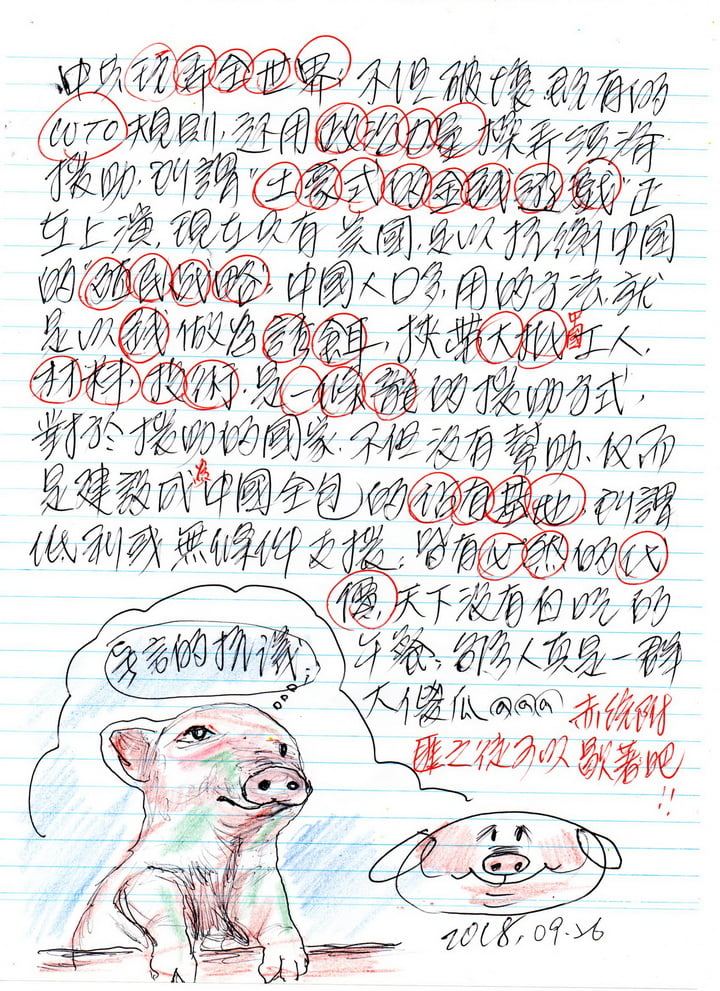 中共玩弄全世界,不但破壞既有的
WTO規則,還用政治力量操弄經濟
援助,所謂"土豪式的金錢遊戲"正
在上演,現在只有美國足以抗衡中國
的"殖民戰略";中國人口多,用的方法就
是以錢做為誘餌,挾帶大批中國工人,
材料,技術,是一條龍的援助方式,
對於援助的國家,不但沒有幫助,反而
是建設成為中國全包的佔有基地,所謂
低利或無條件支援;皆有必然的代
價,天下沒有白吃的
午餐;台灣人真是一群
大傻瓜@@@赤統附
匪之徒可以歇著吧
!!
無言的抗議
2018,09.26